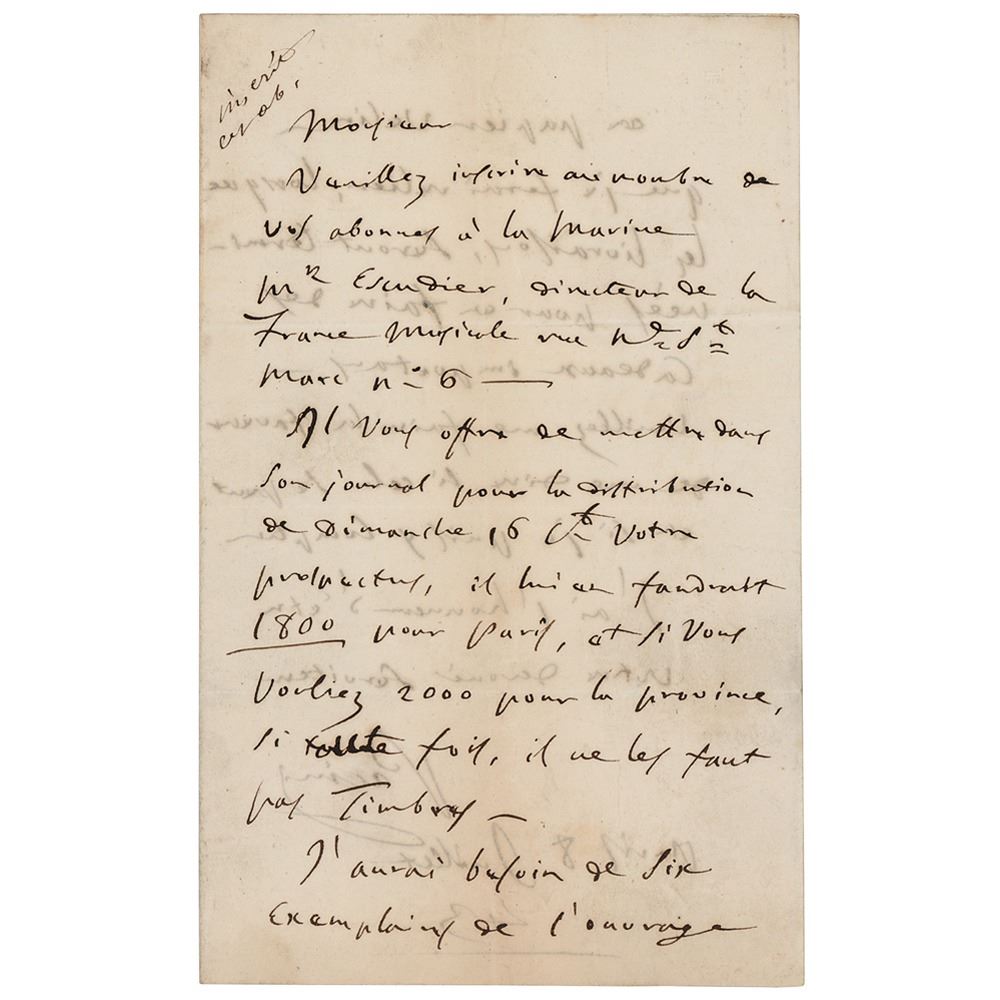 inscrit
Monsieur
Veuillez inscrire au nombre de
vos abonnes à la Marine
Mr Escudier, directeur de la
France Musicale rue Ne St
Marc no 6 —
Il vous offre de mettre dans
son journal pour la distribution
de Dimanche 16 Ct votre
prospectus, il lui en faudrait
1800 pour Paris, et si vous
vouliez 2000 pour la province,
si toute fois, il ne les faut
pas Timbres —
J'aurai besoin de six
Exemplaires de l'ouvrage